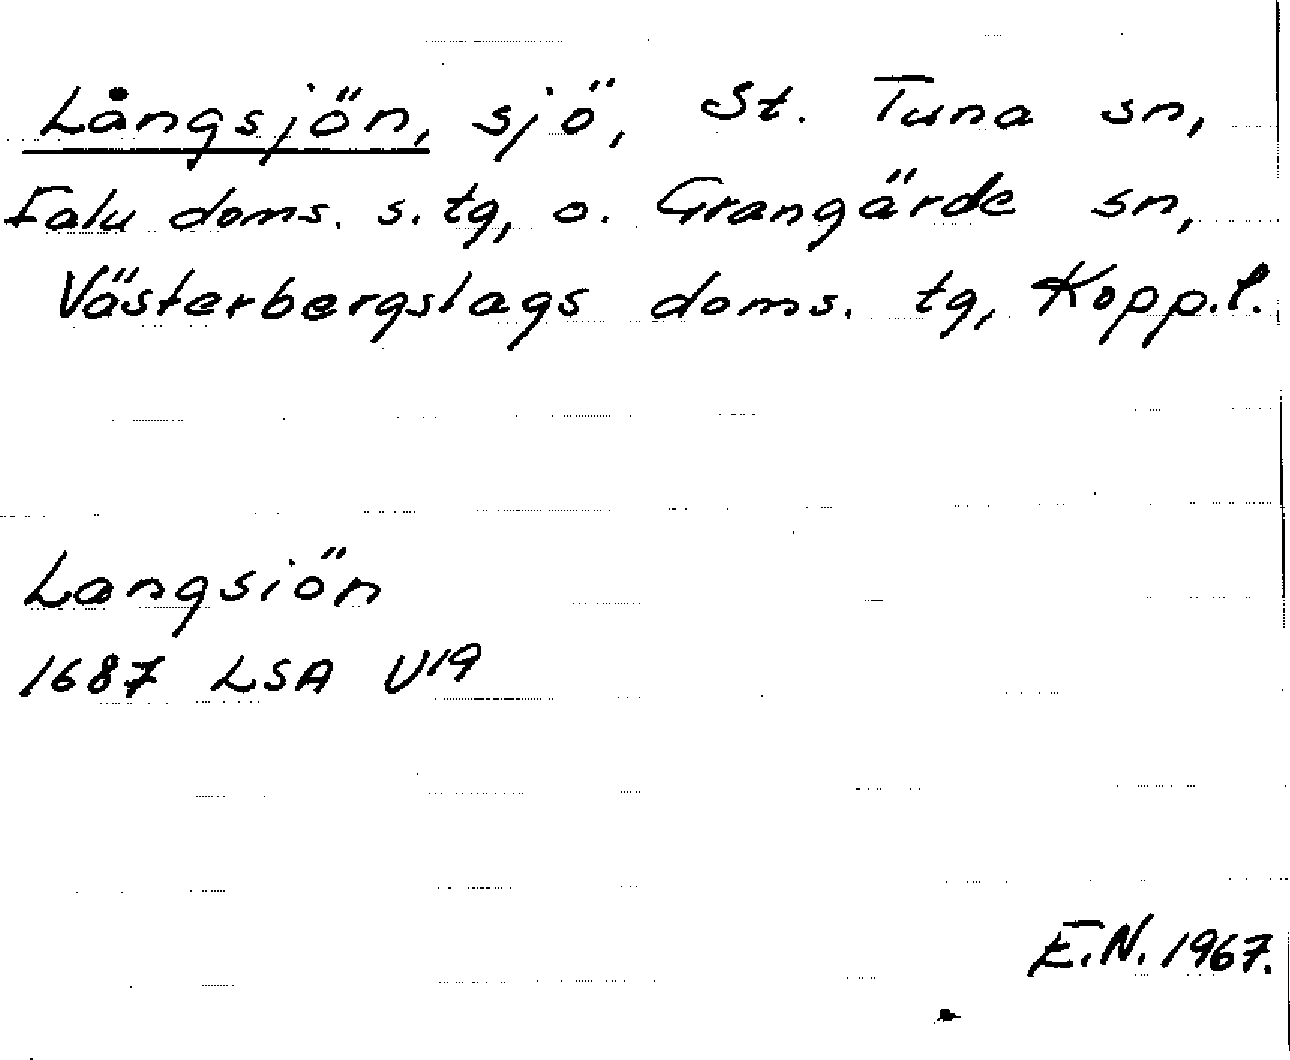 Långsjön, sjö, St. Tuna sn,
Falu doms. s. tg, o. Grangärde sn,
Västerbergslags doms. tg, Kopp.l.
Langsiön
1687 LSA U19
E.N. 1967.